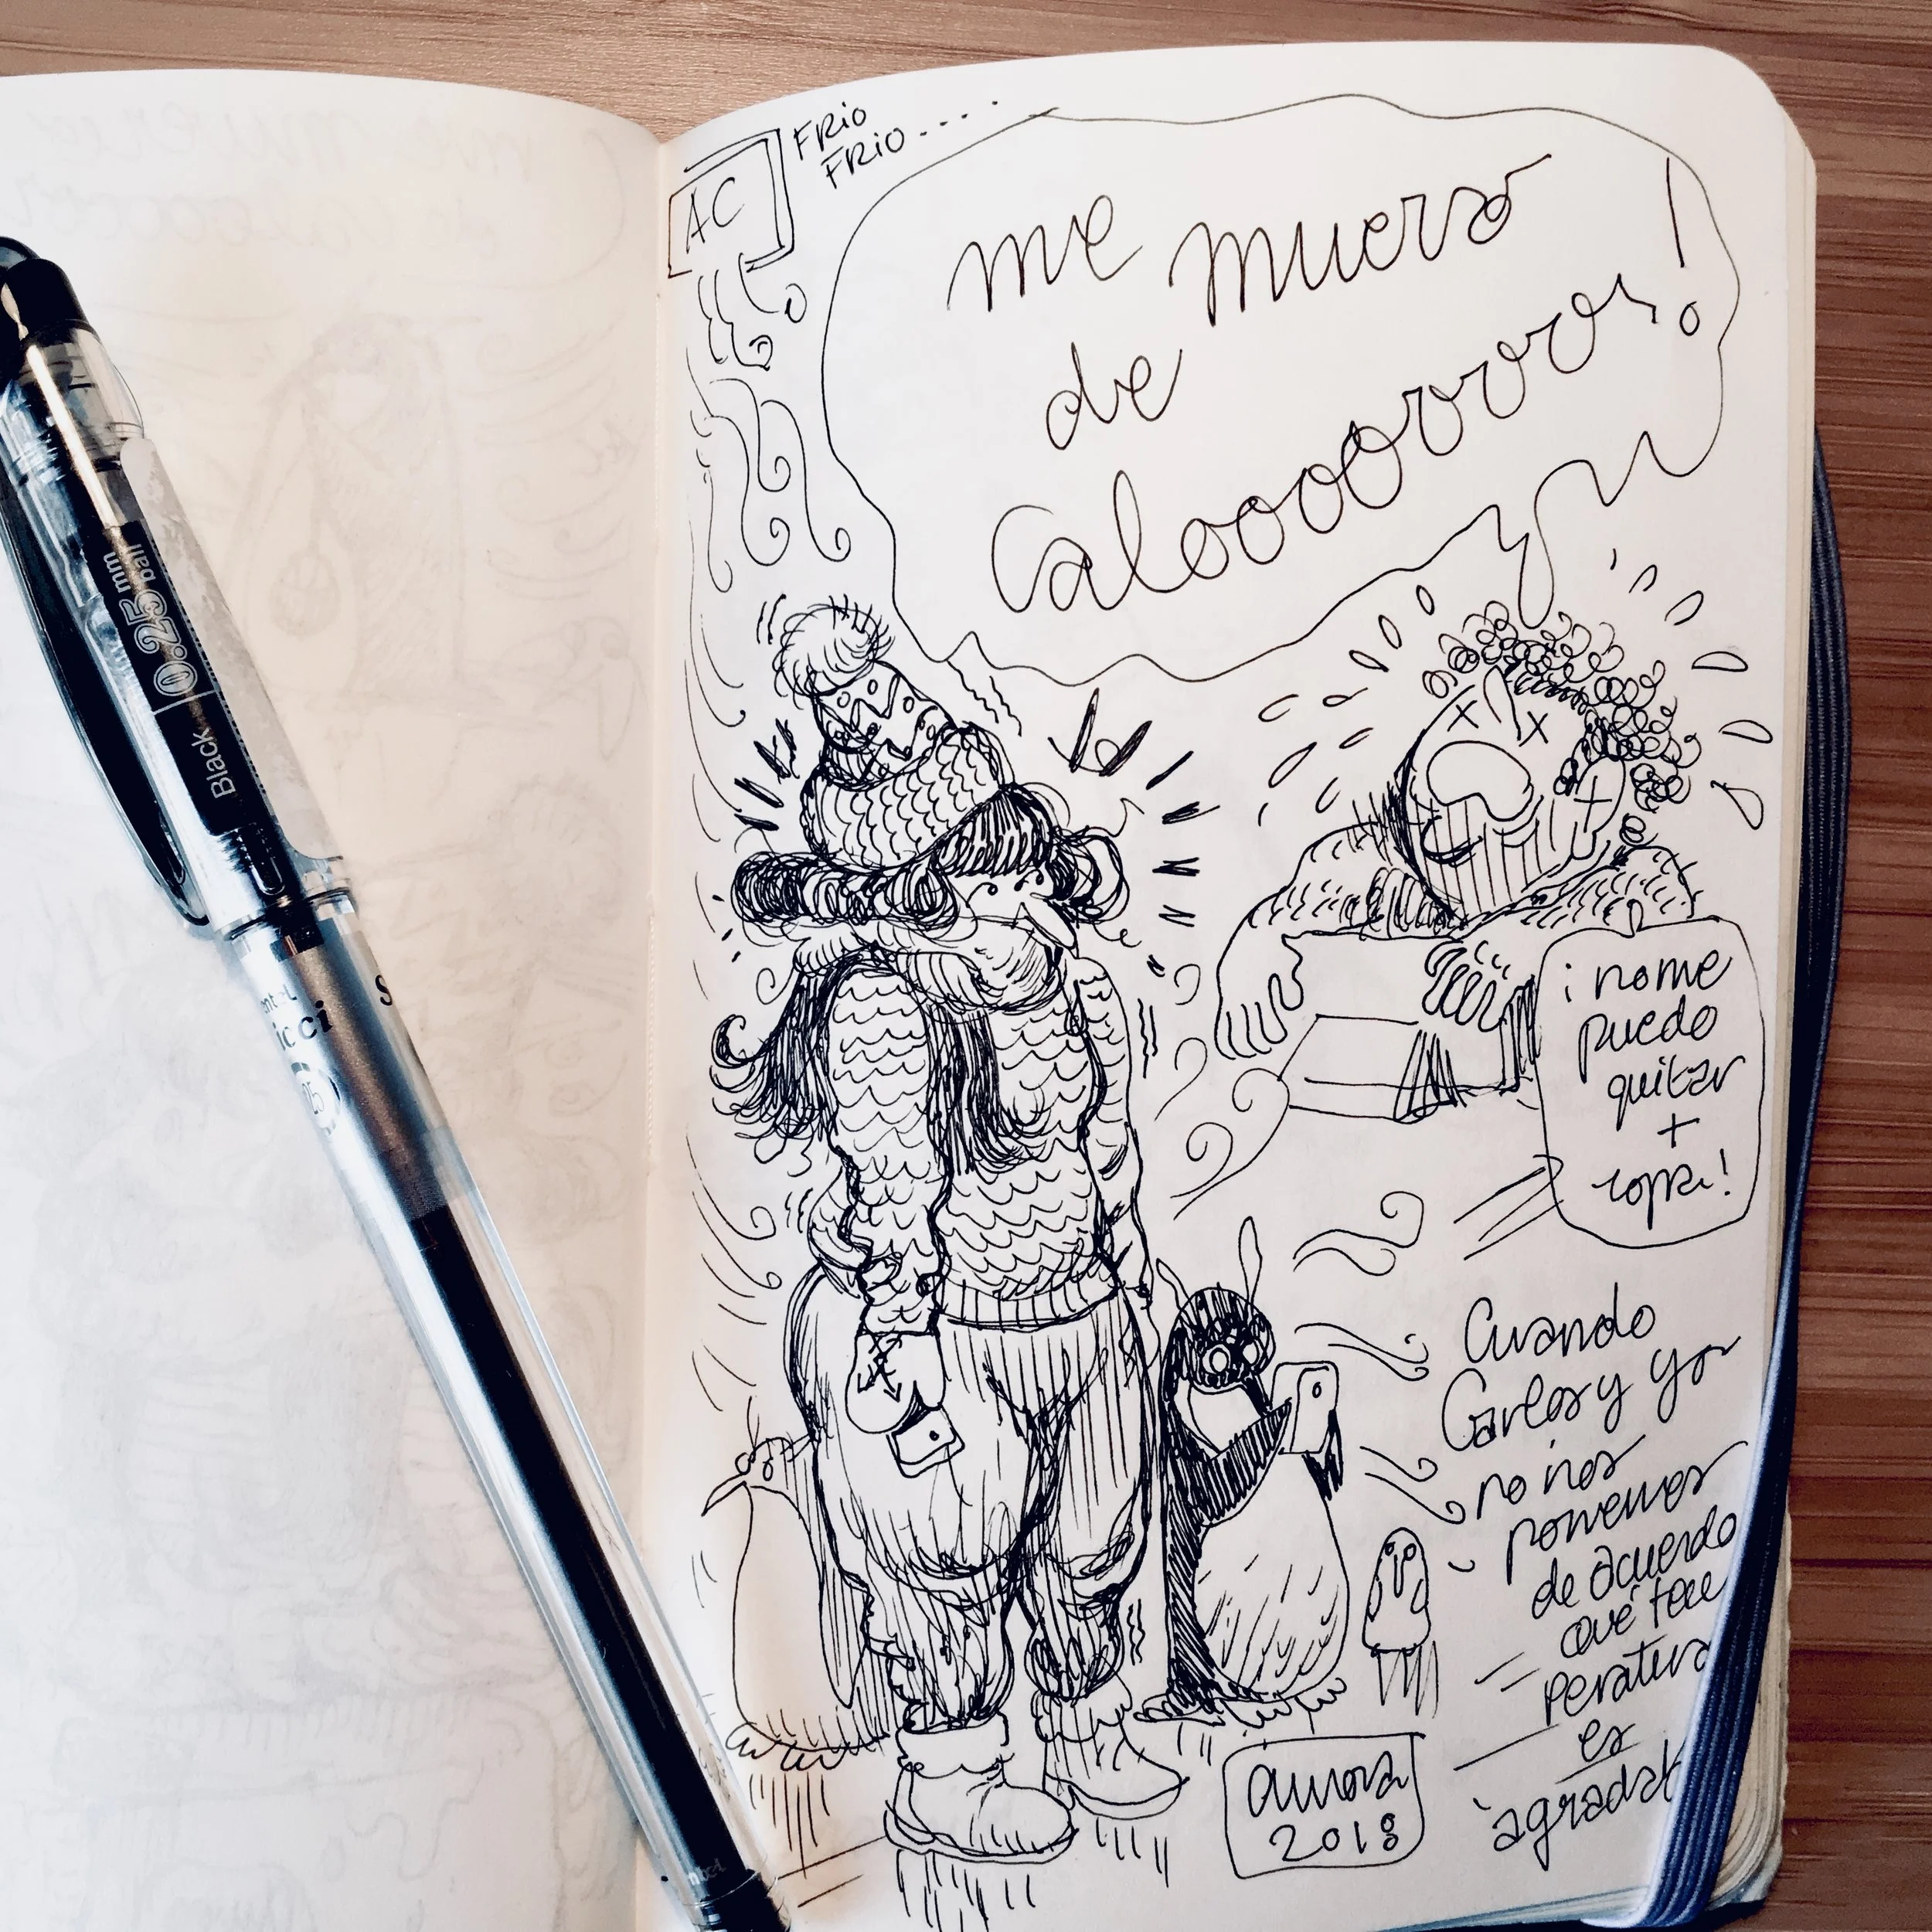 AC
FRIO
FRIO...
me muero
de
Caloooooooor!
¡no me
puedo
quitar
+
ropa!
Cuando
Carlos y yo
no nos
ponemos
de acuerdo
qué tem
peratura
es
"agradab
aurora
2018
Black
0.25 mm
Ball
ntel
icci
25
S